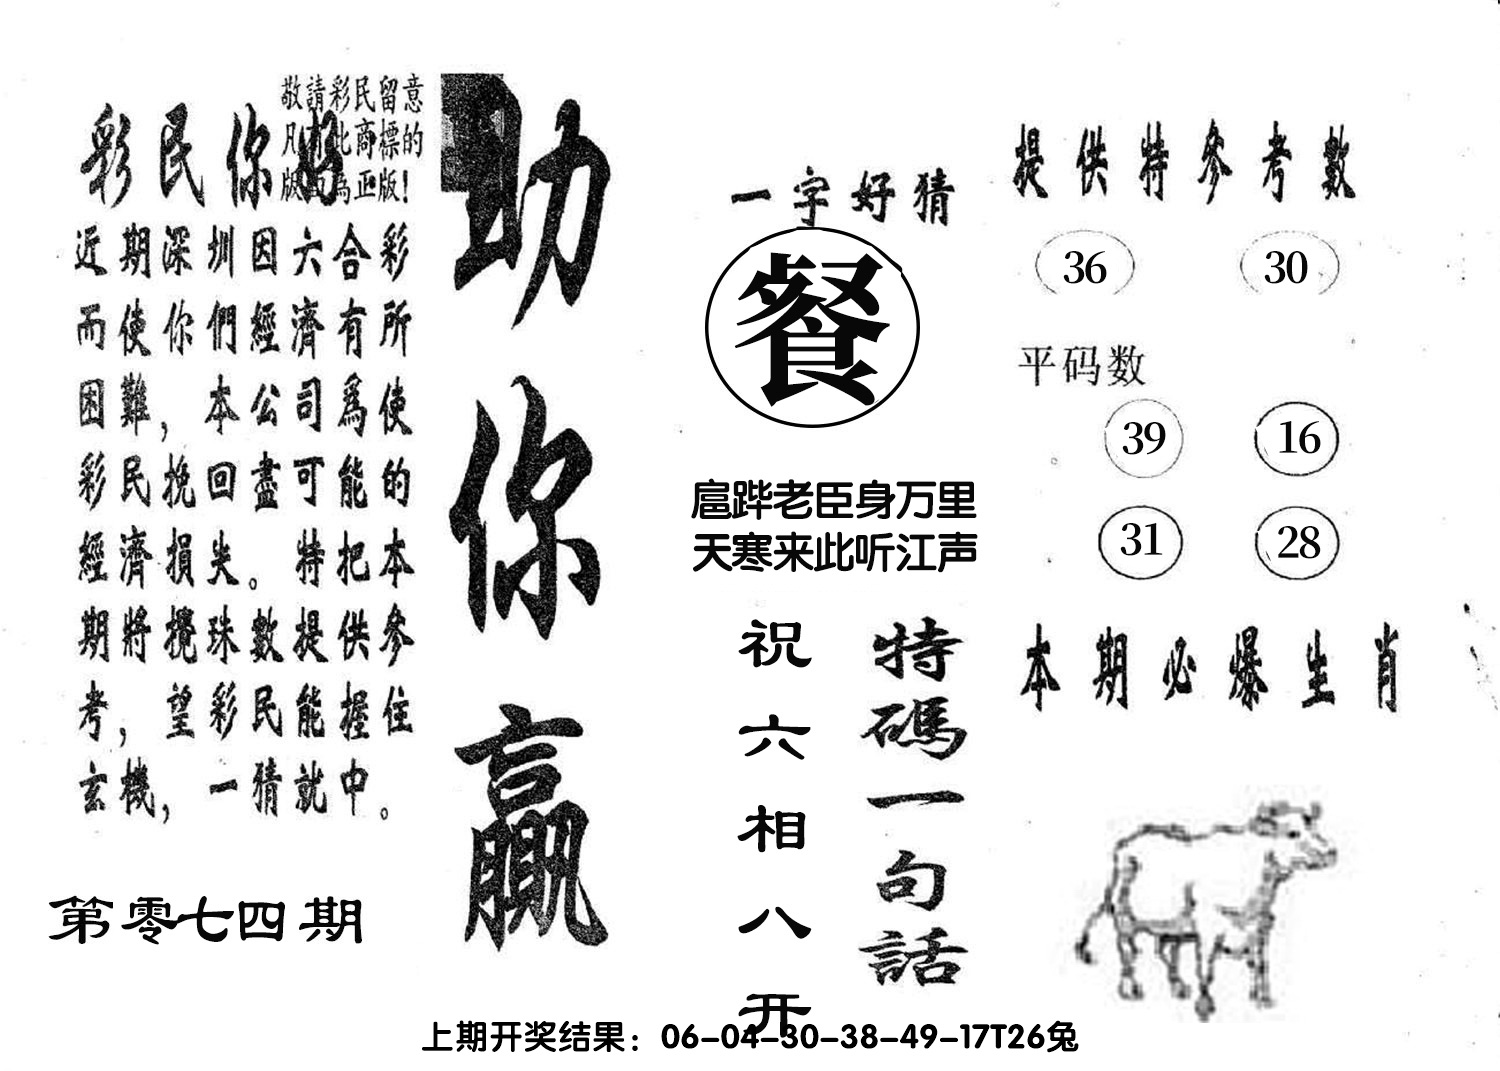 敬請彩民留意
凡有此商標的
版面為正版!
彩民你好
近期深圳因六合彩
而使你們經濟有所
困難，本公司爲使
彩民挽回盡可能的
經濟損失。特把本
期將攪珠數提供參
考，望彩民能握住
玄機，一猜就中。
第零七四期
助你贏
一字好猜
餐
扈跸老臣身万里
天寒来此听江声
特碼一句話
祝六相八开
提供特參考數
36 30
平码数
39 16
31 28
本期必爆生肖
上期开奖结果：06-04-30-38-49-17T26兔